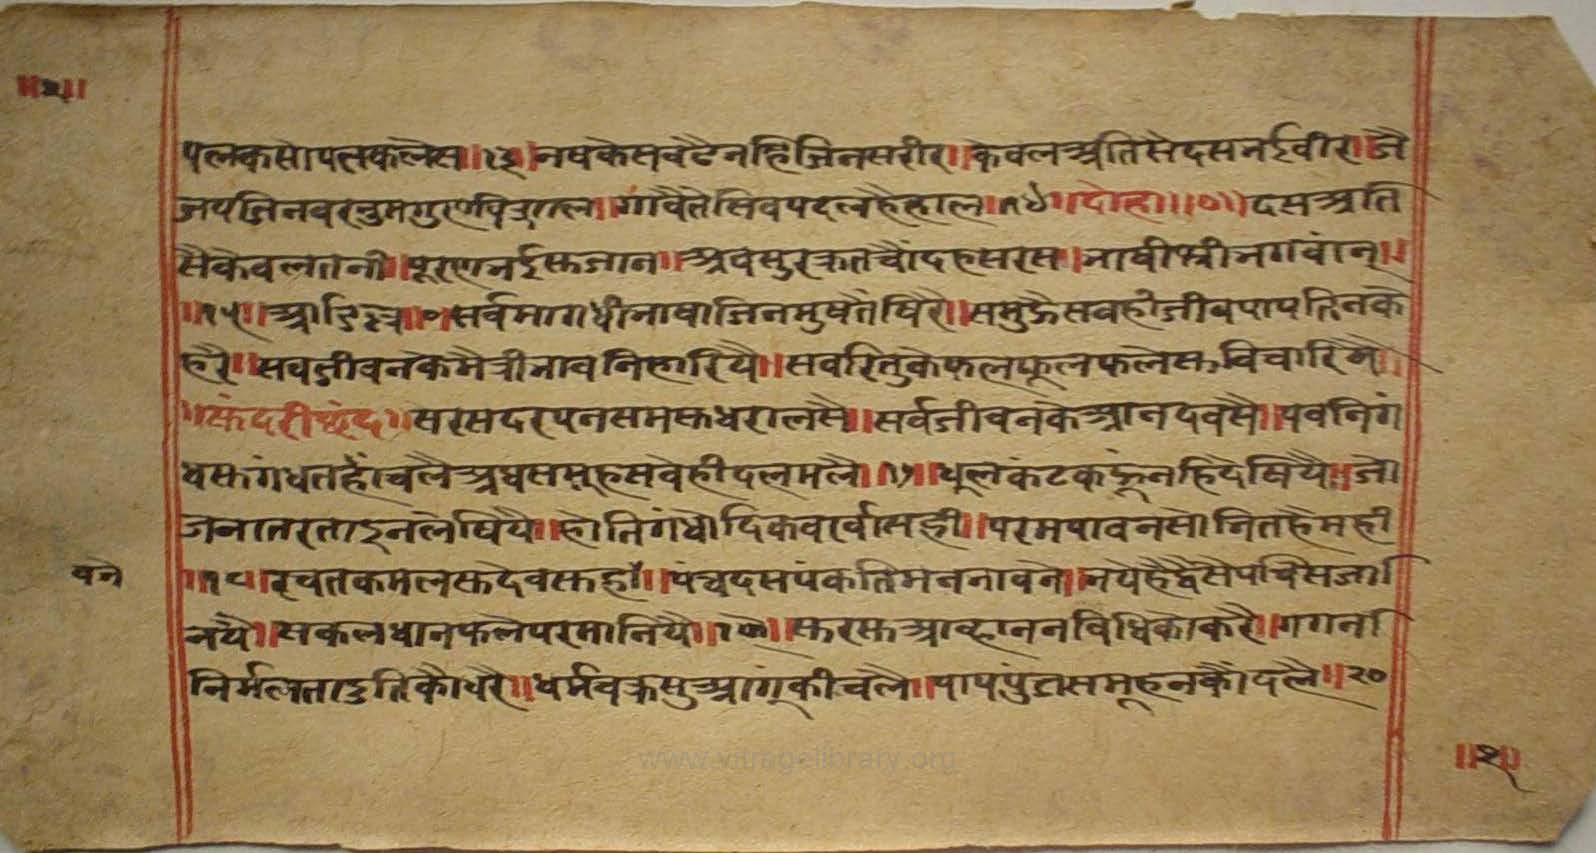 ॥२॥
पलकसोपलकलेस॥१३॥नषकेसवढैनहिजिनसरीर॥केवलअतिसैदसनईवीर॥जै
जयजिनवरतुमगुणविशाल॥गांवैतेसिवपदलहैहाल॥१४॥दोहा॥०॥दसअति
सैकेवलतनी॥पूरणनईसुजान॥अवसुरक्रतचौंदहसरस॥भाषीश्रीभगवांन्॥
॥१५॥अडिल्ल॥०॥सर्वमागधीभाषाजिनमुषतैंषिरै॥समुझैसवहीजीवपापतिनके
हरै॥सवजीवनकेमैत्रीभावनिहारियै॥सवरितुकेफलफूलफलेसुविचारिये॥
॥सुंदरीछंद॥सरसदरपनसमसुधरालसै॥सर्वजीवनकेआनदवसै॥पवनिगं
धसुगंधतहांचलै॥अघसमूहसवैहीदलमलै॥१७॥धूलकंटककूंनहिदेषियै॥जो
जनातरताइनलेषियै॥होतिगंधोदिकवर्षासही॥परमपावनसोभितहैमही
॥१८॥रचतकमलसुदेवसुहां॥पंचदसपंकतिमनभावने॥भयेहैद्वैसैपचिसजां
वने
नयै॥सकलधानफलेपरमानियै॥१९॥सुरसुआव्हाननविधिकोकरै॥गगनां
निर्मलताइतिकौधरै॥धर्मचक्रसुआगूंकीचलै॥पापपुंजसमूहनकौंदलै॥२०
॥२॥
www.vitragelibrary.org